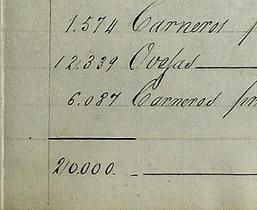 1.574 Carneros p
12.339 Ovejas
6.087 Carneros pr
20.000.